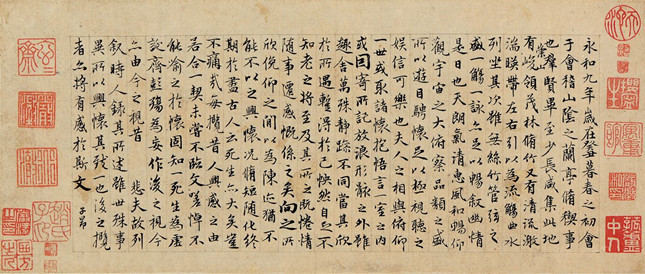 永和九年歲在癸丑暮春之初會
于會稽山陰之蘭亭脩禊事
也羣賢畢至少長咸集此地
有崇山峻領茂林脩竹又有清流激
湍暎帶左右引以為流觴曲水
列坐其次雖無絲竹管弦之
盛一觴一詠亦足以暢敘幽情
是日也天朗氣清惠風和暢仰
觀宇宙之大俯察品類之盛
所以遊目騁懷足以極視聽之
娛信可樂也夫人之相與俯仰
一世或取諸懷抱悟言一室之內
或因寄所託放浪形骸之外雖
趣舍萬殊靜躁不同當其欣
於所遇暫得於己怏然自足不
知老之將至及其所之既惓情
隨事遷感慨係之矣向之所
欣俛仰之間以為陳迹猶不
能不以之興懷況脩短隨化終
期於盡古人云死生亦大矣豈
不痛哉每攬昔人興感之由
若合一契未嘗不臨文嗟悼不
能喻之於懷固知一死生為虛
誕齊彭殤為妄作後之視今
亦由今之視昔悲夫故列
敘時人錄其所述雖世殊事
異所以興懷其致一也後之攬
者亦將有感於斯文
子昂